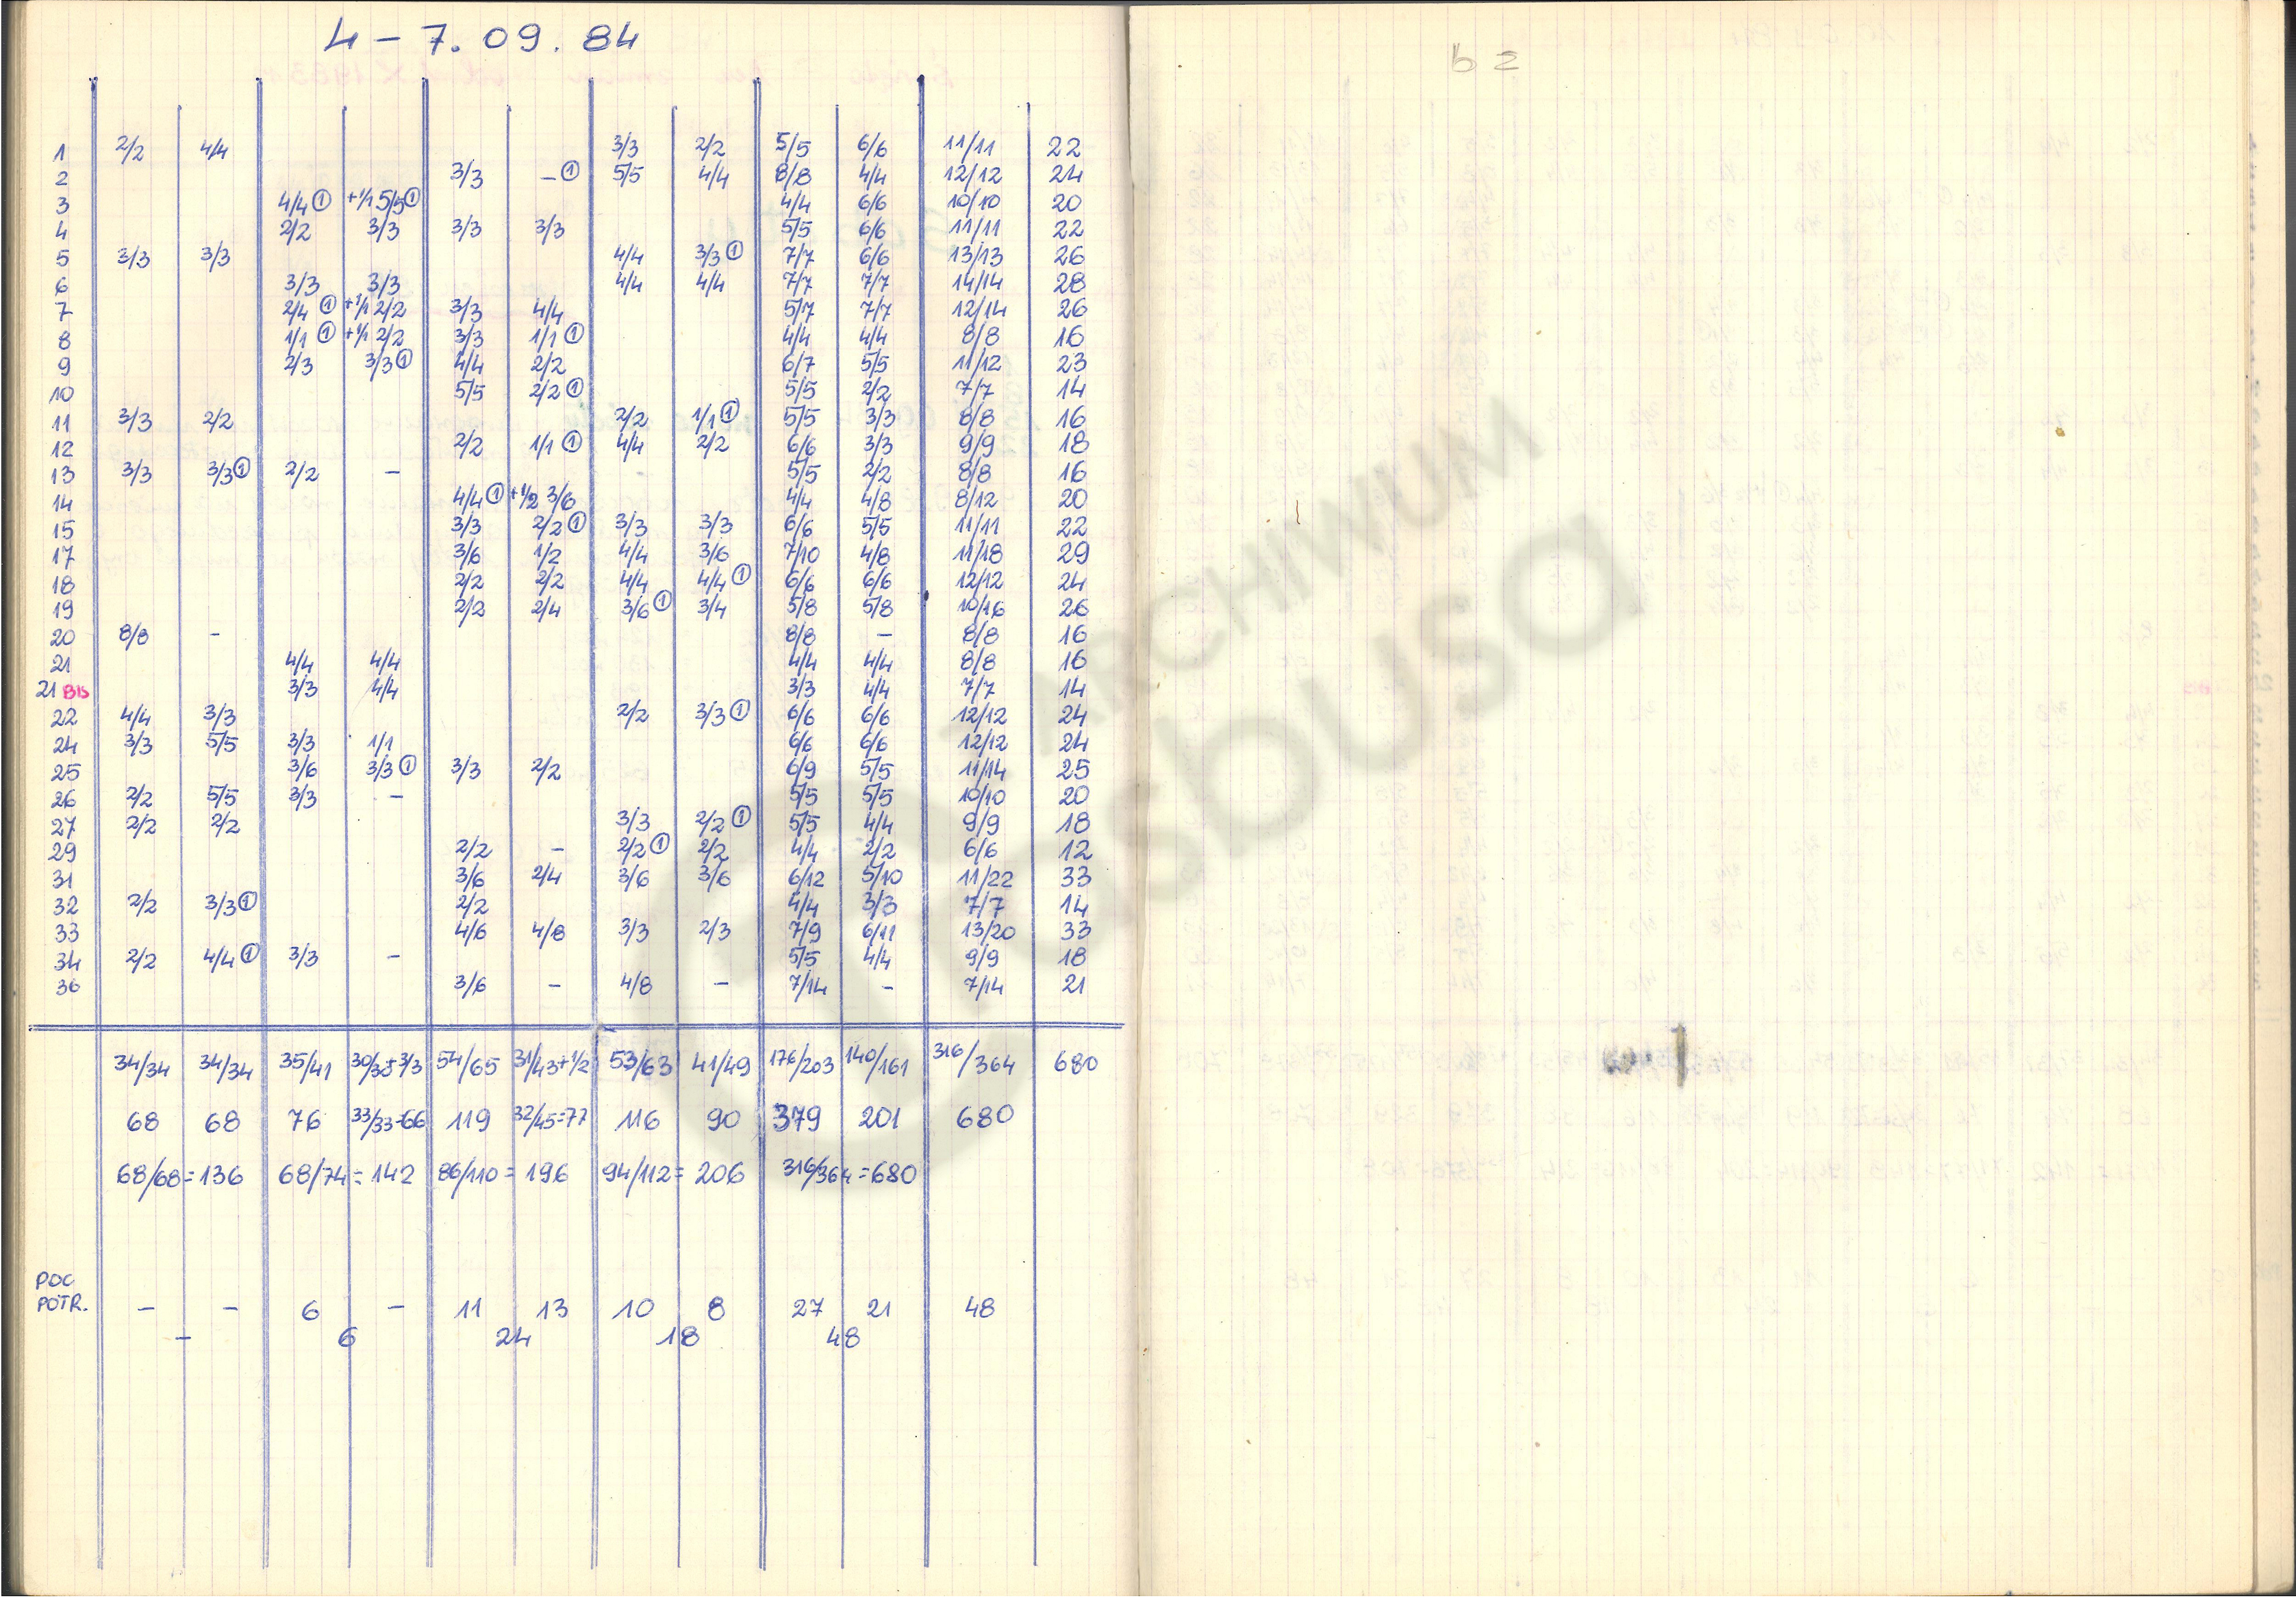 4 – 7. 09. 84
1 2/2 4/4 3/3 2/2 5/5 6/6 11/11 22
2 3/3 – ① 5/5 4/4 8/8 4/4 12/12 24
3 4/4 ① +1/1 5/5 ① 4/4 6/6 10/10 20
4 2/2 3/3 3/3 3/3 5/5 6/6 11/11 22
5 3/3 3/3 4/4 3/3 ① 7/7 6/6 13/13 26
6 3/3 3/3 4/4 4/4 7/7 7/7 14/14 28
7 2/4 ① +1/1 2/2 3/3 4/4 5/7 7/7 12/14 26
8 1/1 ① +1/1 2/2 3/3 1/1 ① 4/4 4/4 8/8 16
9 2/3 3/3 ① 4/4 2/2 6/7 5/5 11/12 23
10 5/5 2/2 ① 5/5 2/2 7/7 14
11 3/3 2/2 2/2 1/1 ① 5/5 3/3 8/8 16
12 2/2 1/1 ① 4/4 2/2 6/6 3/3 9/9 18
13 3/3 3/3 ① 2/2 – 5/5 2/2 8/8 16
14 4/4 ① +1/2 3/6 4/4 4/8 8/12 20
15 3/3 2/2 ① 3/3 3/3 6/6 5/5 11/11 22
17 3/6 1/2 4/4 3/6 7/10 4/8 11/18 29
18 2/2 2/2 4/4 4/4 ① 6/6 6/6 12/12 24
19 2/2 2/4 3/6 ① 3/4 5/8 5/8 10/16 26
20 8/8 – 8/8 – 8/8 16
21 4/4 4/4 4/4 4/4 8/8 16
21 BIS 3/3 4/4 3/3 4/4 7/7 14
22 4/4 3/3 2/2 3/3 ① 6/6 6/6 12/12 24
24 3/3 5/5 3/3 1/1 6/6 6/6 12/12 24
25 3/6 3/3 ① 3/3 2/2 6/9 5/5 11/14 25
26 2/2 5/5 3/3 – 5/5 5/5 10/10 20
27 2/2 2/2 3/3 2/2 ① 5/5 4/4 9/9 18
29 2/2 – 2/2 ① 2/2 4/4 2/2 6/6 12
31 3/6 2/4 3/6 3/6 6/12 5/10 11/22 33
32 2/2 3/3 ① 2/2 4/4 3/3 7/7 14
33 4/6 4/8 3/3 2/3 7/9 6/11 13/20 33
34 2/2 4/4 ① 3/3 – 5/5 4/4 9/9 18
36 3/6 – 4/8 – 7/14 – 7/14 21
34/34 34/34 35/41 30/33+3/3 54/65 31/43+1/2 53/63 41/49 176/203 140/161 316/364 680
68 68 76 33/33=66 119 32/45=77 116 90 379 201 680
68/68 = 136 68/74 = 142 86/110 = 196 94/112 = 206 316/364 = 680
POC
POTR. – – 6 – 11 13 10 8 27 21 48
– 6 24 18 48
bz
ARCHIWUM
osbusa